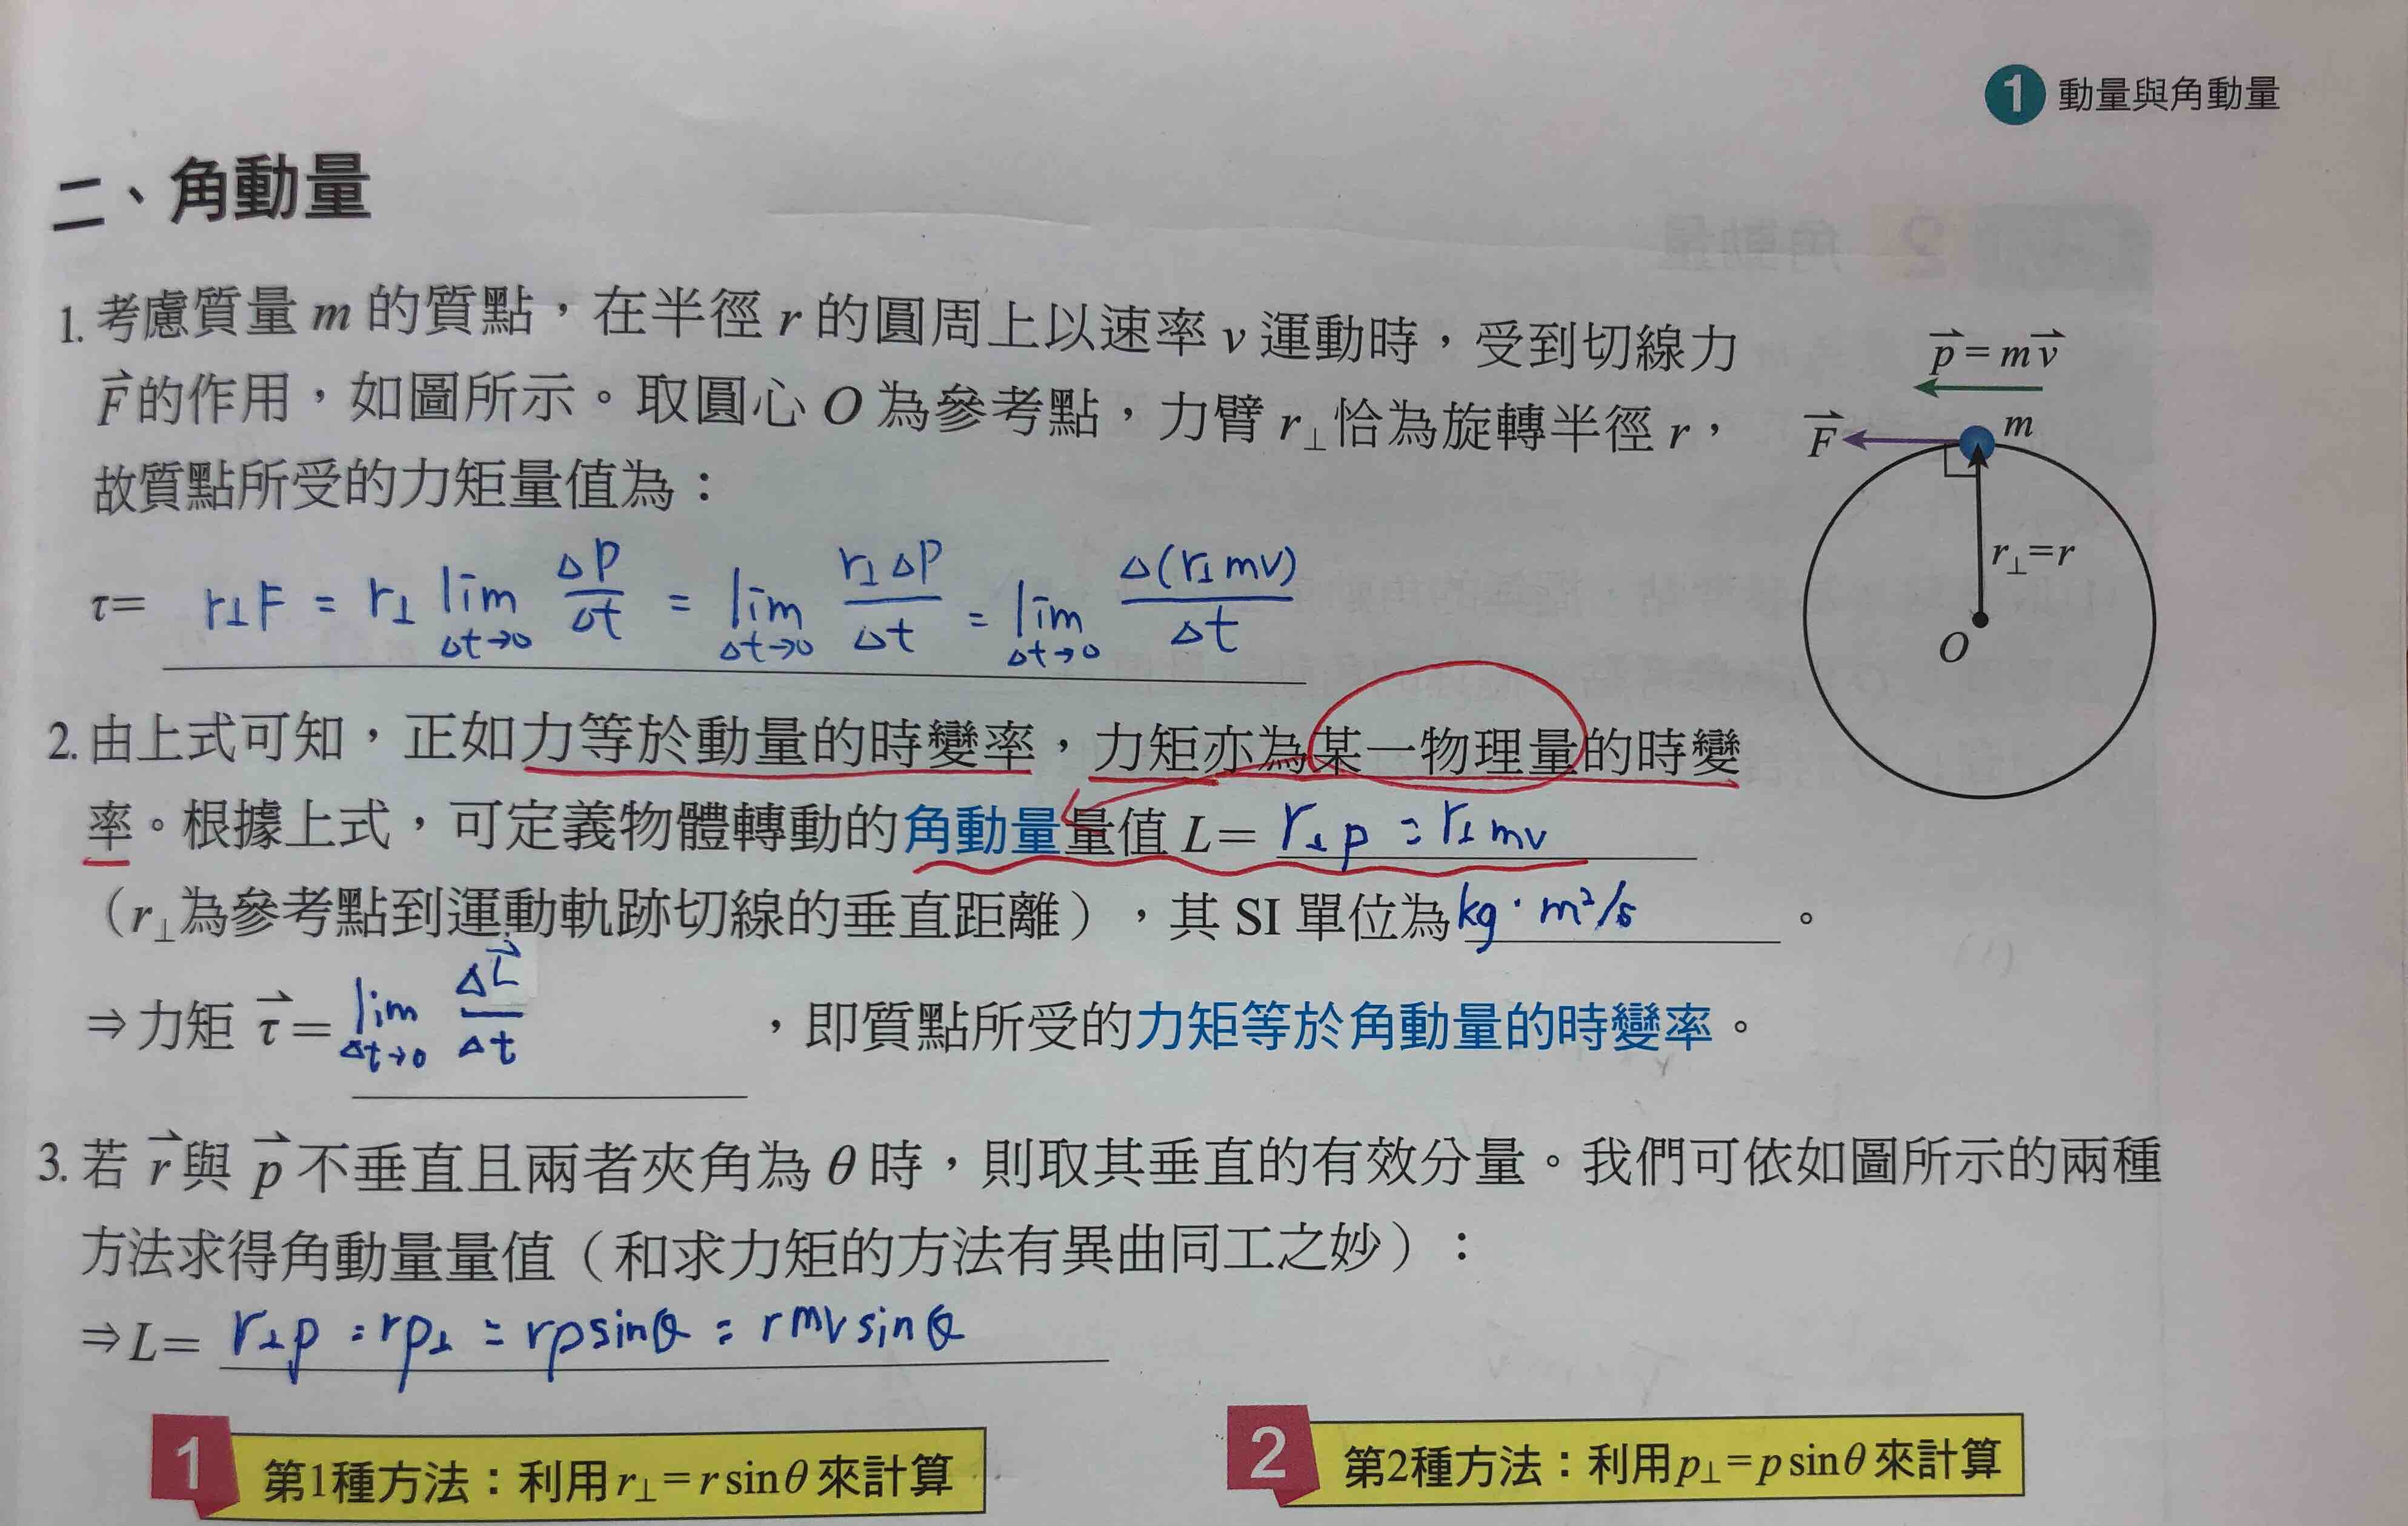 1 動量與角動量
二、角動量
1. 考慮質量 m 的質點，在半徑 r 的圓周上以速率 v 運動時，受到切線力
F⃗的作用，如圖所示。取圓心 O 為參考點，力臂 r⊥恰為旋轉半徑 r，
故質點所受的力矩量值為：
τ= r⊥F = r⊥ lim Δt→0 Δp/Δt = lim Δt→0 r⊥Δp/Δt = lim Δt→0 Δ(r⊥mv)/Δt
p⃗=mv⃗
F⃗
m
r⊥=r
O
2. 由上式可知，正如力等於動量的時變率，力矩亦為某一物理量的時變
率。根據上式，可定義物體轉動的角動量量值 L= r⊥p = r⊥mv
（r⊥為參考點到運動軌跡切線的垂直距離），其 SI 單位為kg·m²/s。
⇒力矩 τ⃗= lim Δt→0 ΔL⃗/Δt，即質點所受的力矩等於角動量的時變率。
3. 若 r⃗與 p⃗ 不垂直且兩者夾角為 θ 時，則取其垂直的有效分量。我們可依如圖所示的兩種
方法求得角動量量值（和求力矩的方法有異曲同工之妙）：
⇒L= r⊥p = rp⊥ = rpsinθ = rmvsinθ
1 第1種方法：利用r⊥=rsinθ來計算
2 第2種方法：利用p⊥=psinθ來計算